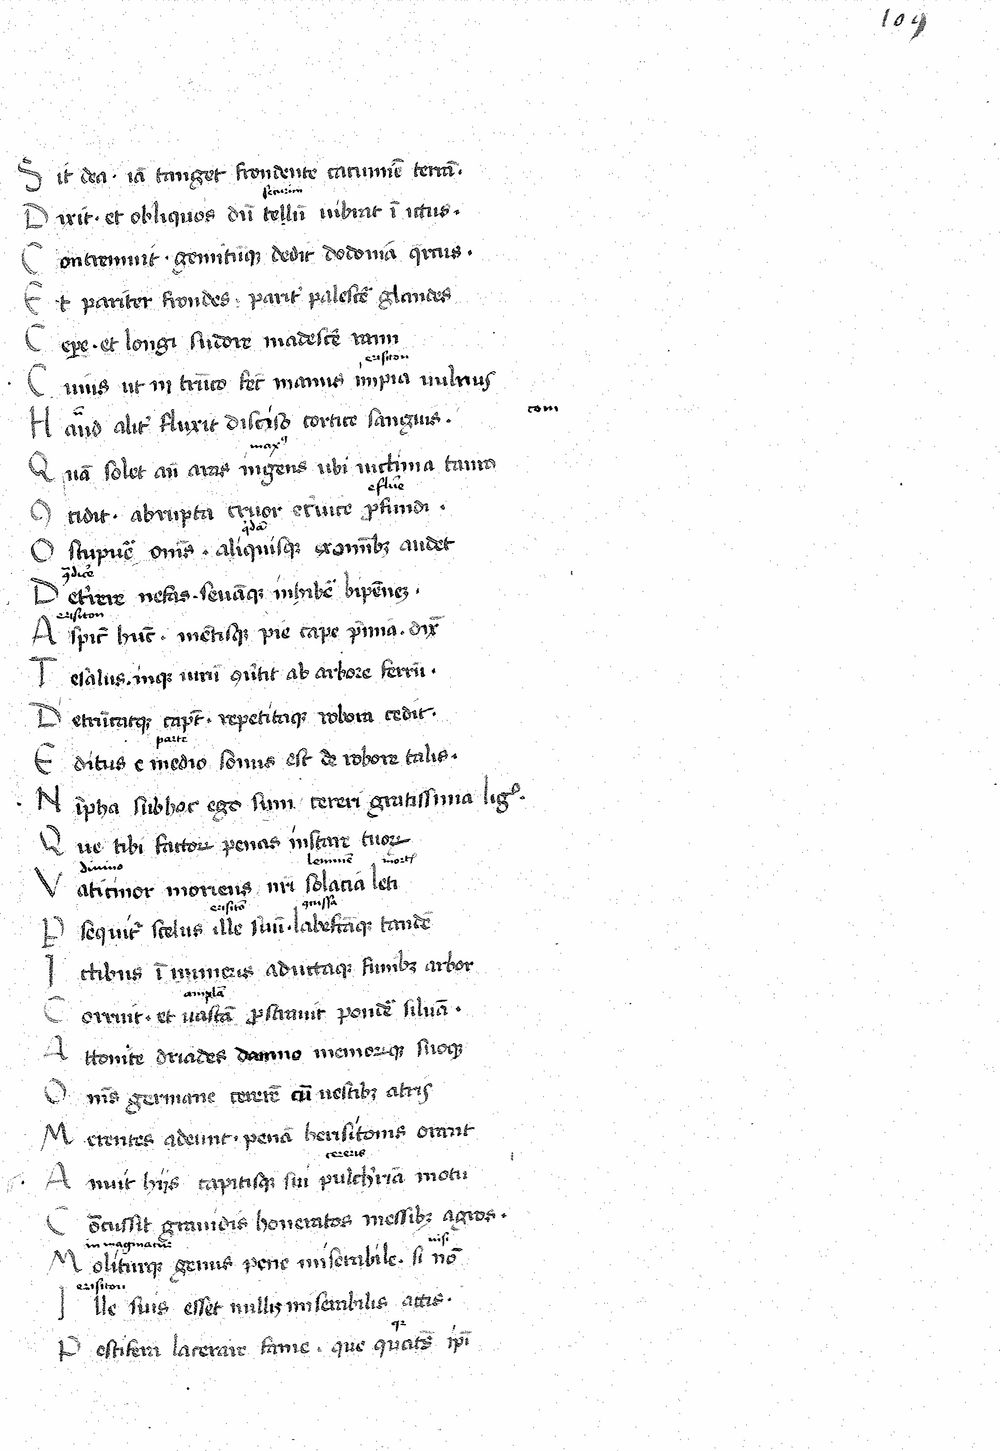 109
Sit dea. iā tanget frondente cacumīe terrā.
securim
Dixit. et obliquos dū tellū uibrat ī ictus.
Contremuit. gemitūq; dedit dodonia q̄rcus.
Et pariter frondes. parit̄ palescē glandes
Cepe. et longi sudore madescē rami
erisiton
Cuius ut in trūco fec̄ manus impia uulnus
Haud alit̄ fluxit discisso cortice sanguis.
com
max⁹
Quā solet an̄ aras ingens ubi uictima taurus
efluē
Ocidit. abrupta cruor ceruice ꝓfundi.
q̄dā
Ostupuē oms̄. aliquisq; ex omnib; audet
Det̄rere nefas. seuāq; inhibē bipēnez.
erisiton
Aspic̄ hūc. mētisq; pie cape p̄mia. dix̄
Tesalus. inq; uirū ꝯūtit ab arbore ferrū.
Detrūcatq; capt̄. repetitaq; robora cedit.
parte
Editus e medio sonus est de robore talis.
Nīpha sub hoc ego sum cereri gratissima ligº.
Que tibi factoꝝ penas instare tuoꝝ
diuino
lenimē
mortis
Vaticinor moriens nr̄i solacia leti
erisitō
quassa
Psequit̄ scelus ille suū. labefactāq; tandē
Ictibus īnumeris adductaq; funib; arbor
amplā
Corruit. et uastā ꝓstrauit pondē siluā.
Attonite driades damno nemorūq; suoq;
Oms̄ germane cererē cū uestib; atris
Merentes adeunt. penā herisitonis orant
cereris
Anuit hijs capitisq; sui pulcherriā motu
Cōcussit grauidis honeratos messib; agros.
nisi
Moliturq; genus pene miserabile. si nō
erisiton
Ille suis esset nullis miserabilis actis.
Pestifera lacerare fame. que quatēs ip̄i